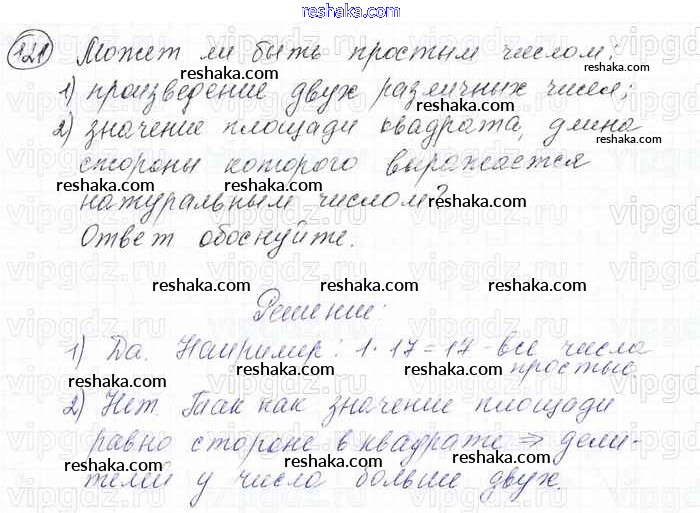 reshaka.com
121 Может ли быть простым числом:
1) произведение двух различных чисел;
2) значение площади квадрата, длина
стороны которого выражается
натуральным числом?
Ответ обоснуйте.
Решение:
1) Да. Например: 1·17=17 - все числа
простые.
2) Нет. Так как значение площади
равно стороне в квадрате ⇒ дели-
телей у числа больше двух.